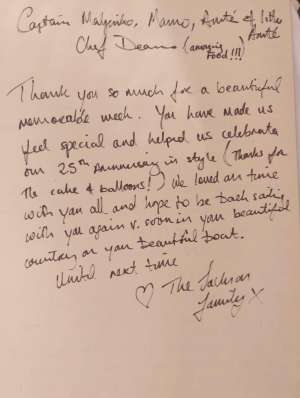 Captain Maljčiko, Mamo, Ante & little Ante
Chef Deano (amazing Food!!!)
Thank you so much for a beautiful
memorable week. You have made us
feel special and helped us celebrate
our 25th Anniversary in style (Thanks for
the cake & balloons!) We loved our time
with you all and hope to be back sailing
with you again v. soon in your beautiful
country on your beautiful boat.
Until next time
♡ The Jackson
Family X